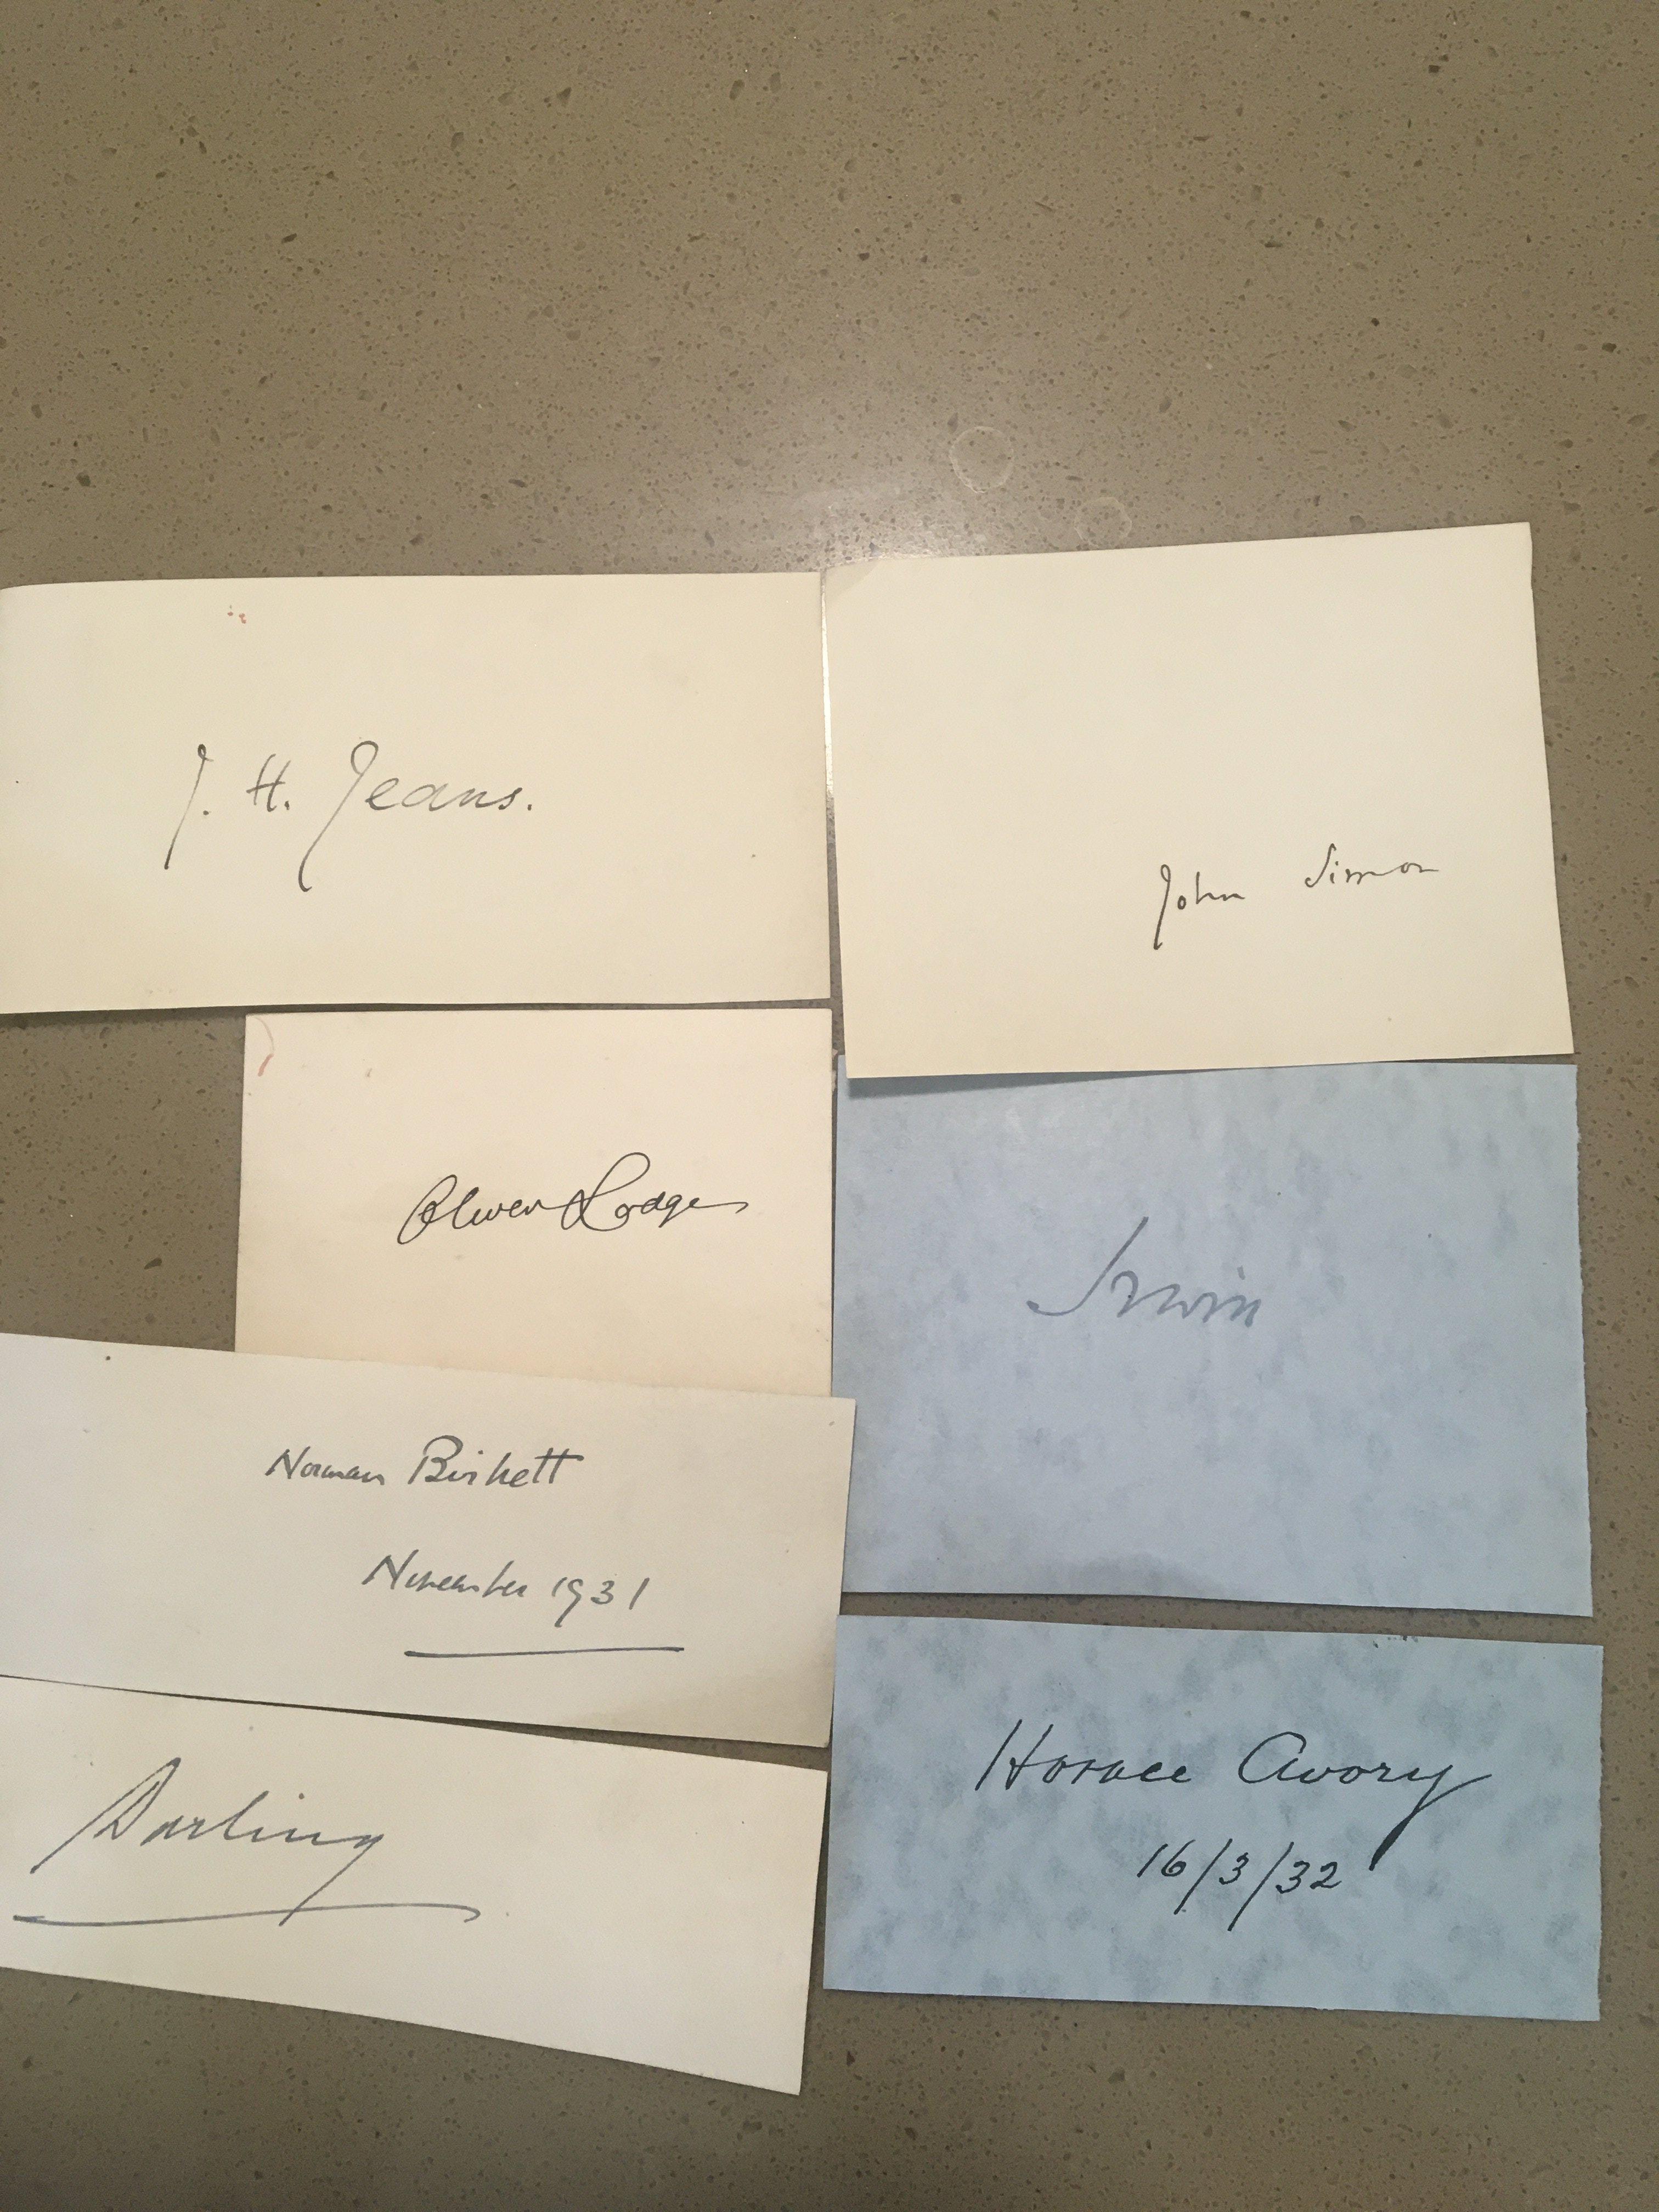 J. H. Jeans.
John Simon
Oliver Lodge
Irwin
Norman Birkett
November 1931
Darling
Horace Avory
16/3/32